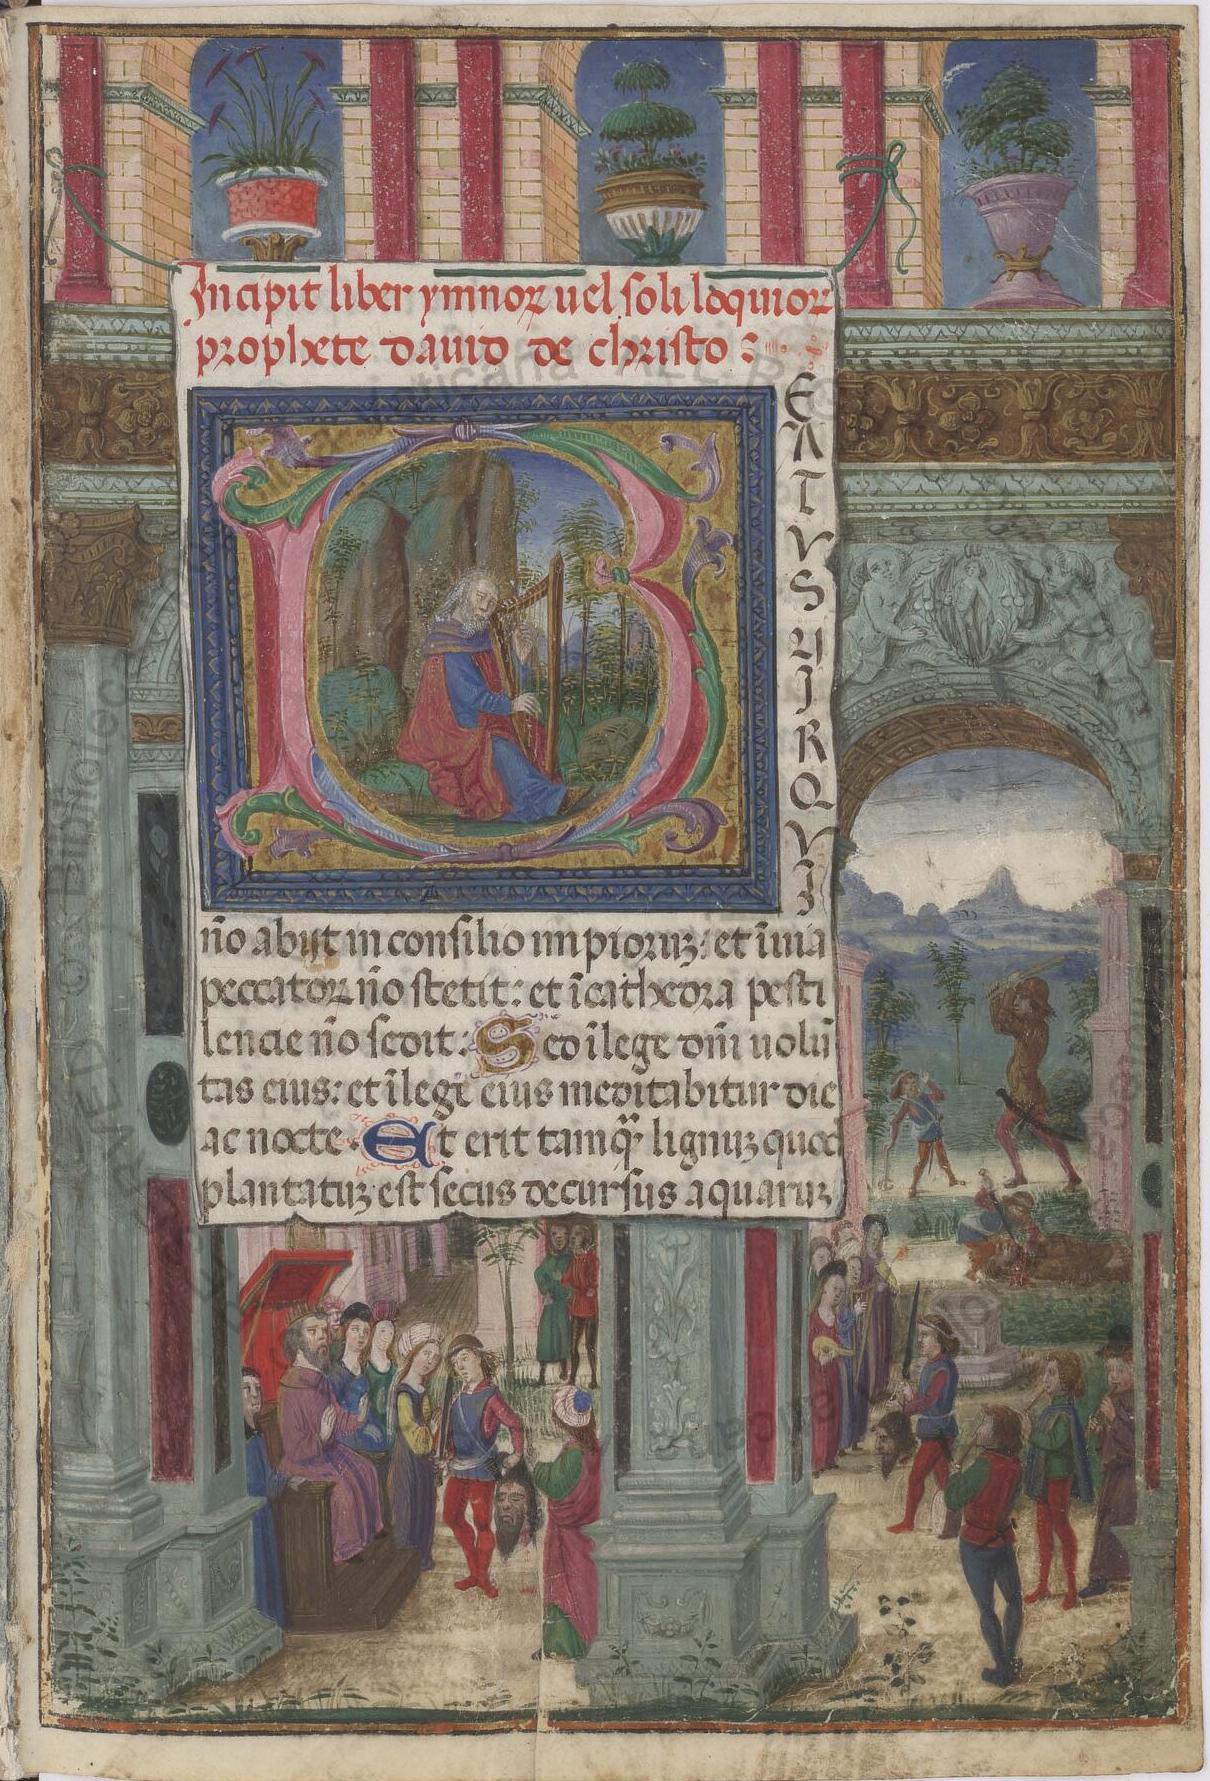 Incipit liber ymnoꝝ uel soliloquioꝝ
prophete dauid de christo :
B
EATVS VIR QVI
nō abijt in consilio impioruꝫ: et ī uia
peccatoꝝ nō stetit: et ī cathedra pesti
lencie nō sedit: Sed ī lege dn̄i uolū
tas eius: et ī lege eius meditabitur die
ac nocte. Et erit tamq̄ lignuꝫ quod
plantatuꝫ est secus decursus aquaruꝫ